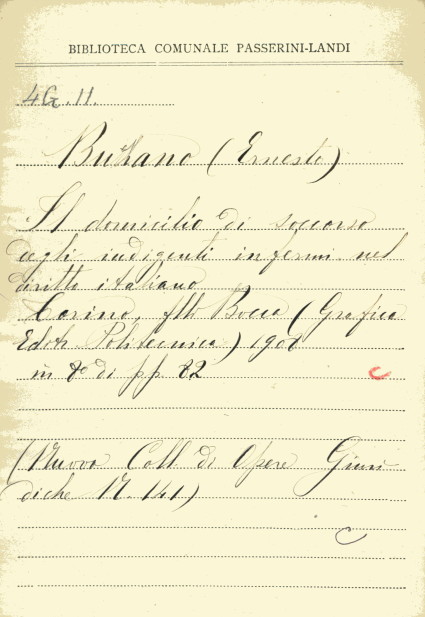 BIBLIOTECA COMUNALE PASSERINI-LANDI
4G. 11.
(Ernesto)
Il domicilio di soccorso
degli indigenti infermi nel
diritto italiano
Torino, flli Bocca (Grafica
Editr Politecnica)
in 8° di pp 82
c
(Nuova Coll di Opere Giuri-
diche N. 141)
c